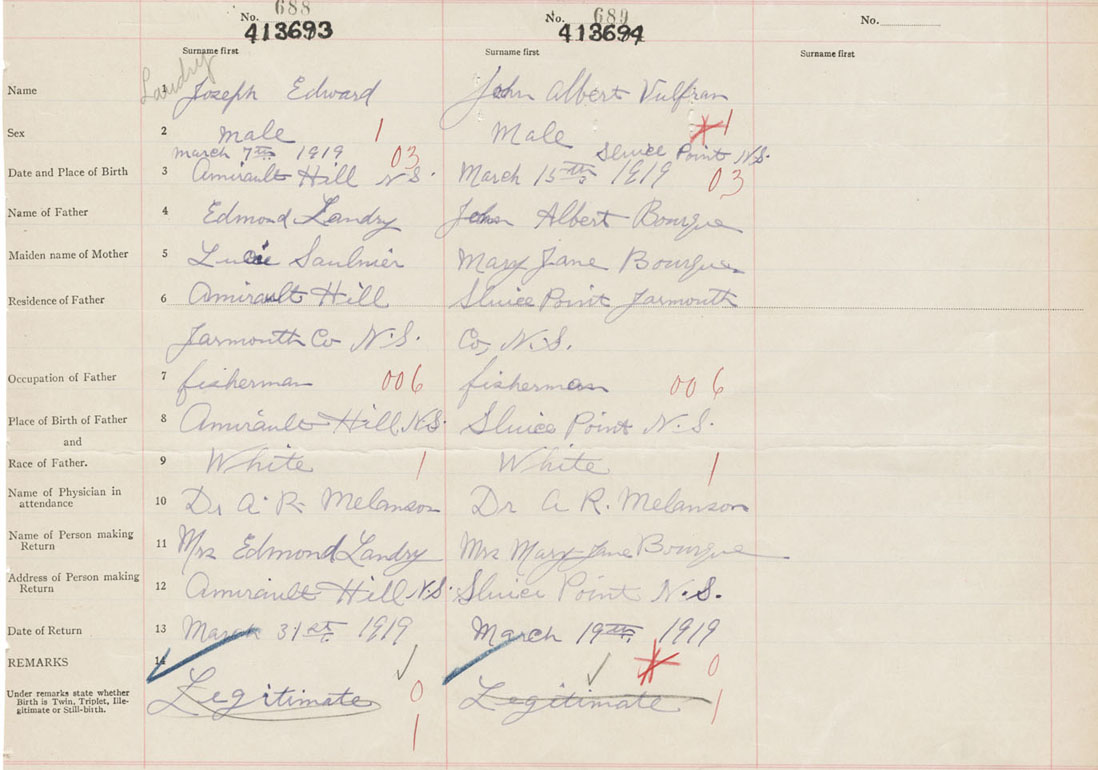 688
No.
413693
689
No.
413694
No.
Surname first
Surname first
Surname first
Landry
Name
1
Joseph Edward
John Albert Vulfran
Sex
2
male
1
Male
1
Date and Place of Birth
3
march 7th 1919
03
Amirault Hill N S.
Sluice Point N.S.
March 15th 1919
03
Name of Father
4
Edmond Landry
John Albert Bourque
Maiden name of Mother
5
Lucie Saulnier
Mary Jane Bourque
Residence of Father
6
Amirault Hill
Yarmouth Co N.S.
Sluice Point Yarmouth
Co, N.S.
Occupation of Father
7
fisherman
006
fisherman
006
Place of Birth of Father
and
8
Amirault Hill N.S.
Sluice Point N.S.
Race of Father.
9
White
1
White
1
Name of Physician in
attendance
10
Dr A. R. Melanson
Dr A R. Melanson
Name of Person making
Return
11
Mrs Edmond Landry
Mrs Mary Jane Bourque
Address of Person making
Return
12
Amirault Hill N.S.
Sluice Point N.S.
Date of Return
13
March 31st 1919
March 19th 1919
REMARKS
14
Under remarks state whether
Birth is Twin, Triplet, Ille-
gitimate or Still-birth.
Legitimate
0
1
Legitimate
0
1